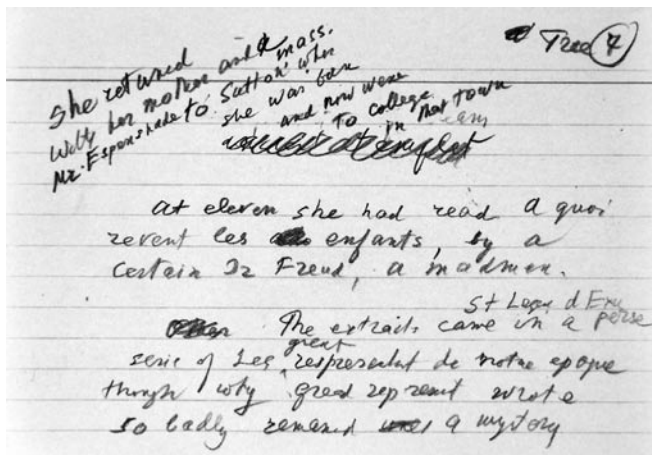 Three 7
She returned
with her mother and
Mr. Espenshade to Sutton, Mass. where
she was born
and now went
to college
in that town
At eleven she had read A quoi
revent les enfants, by a
certain Dr Freud, a madman.
The extracts came in a St Leger d'Exu perse
serie of Les great representant de notre epoque
though why great represent wrote
so badly remained a mystery